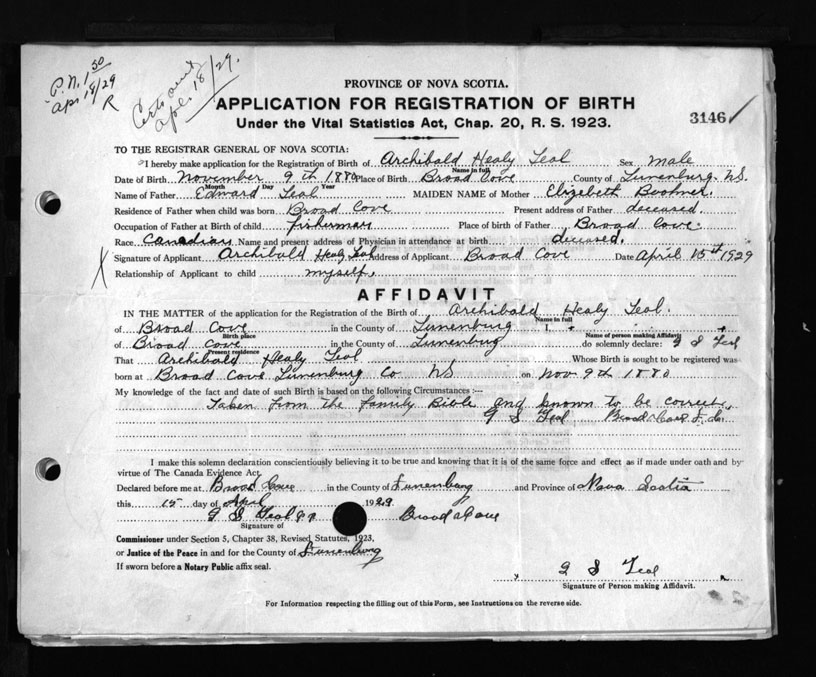 P.N. 1 50
Apr 18/29
R
Apl. 18/29.
PROVINCE OF NOVA SCOTIA.
APPLICATION FOR REGISTRATION OF BIRTH
Under the Vital Statistics Act, Chap. 20, R. S. 1923.
3146
TO THE REGISTRAR GENERAL OF NOVA SCOTIA:
I hereby make application for the Registration of Birth of Archibald Healy Teal Sex male
Name in full
Date of Birth November 9th 1880 Place of Birth Broad Cove County of Lunenburg. N.S.
Month Day Year
Name of Father Edward Teal MAIDEN NAME of Mother Elizebeth Boohner.
Residence of Father when child was born Broad Cove Present address of Father deceased.
Occupation of Father at Birth of child fisherman Place of birth of Father Broad Cove.
Race Canadian Name and present address of Physician in attendance at birth deceased.
Signature of Applicant Archibald Healy Teal Address of Applicant Broad Cove Date April 15st 1929
Relationship of Applicant to child myself.
AFFIDAVIT
IN THE MATTER of the application for the Registration of the Birth of Archibald Healy Teal.
Name in full
of Broad Cove in the County of Lunenburg I,
Birth place Name of person making Affidavit
of Broad Cove in the County of Lunenburg do solemnly declare: G S Teal
Present residence
That Archibald Healy Teal Whose Birth is sought to be registered was
born at Broad Cove Lunenburg Co NS on Nov 9th 1880
My knowledge of the fact and date of such Birth is based on the following Circumstances :—
Taken from the family Bible and known to be correct,
G S Teal Broad Cove
I make this solemn declaration conscientiously believing it to be true and knowing that it is of the same force and effect as if made under oath and by
virtue of The Canada Evidence Act.
Declared before me at Broad Cove in the County of Lunenburg and Province of Nova Scotia
this 15 day of April 1929
G S Teal J.P. Broad Cove
Signature of
Commissioner under Section 5, Chapter 38, Revised Statutes, 1923,
or Justice of the Peace in and for the County of Lunenburg
If sworn before a Notary Public affix seal.
x G S Teal
Signature of Person making Affidavit.
For Information respecting the filling out of this Form, see Instructions on the reverse side.